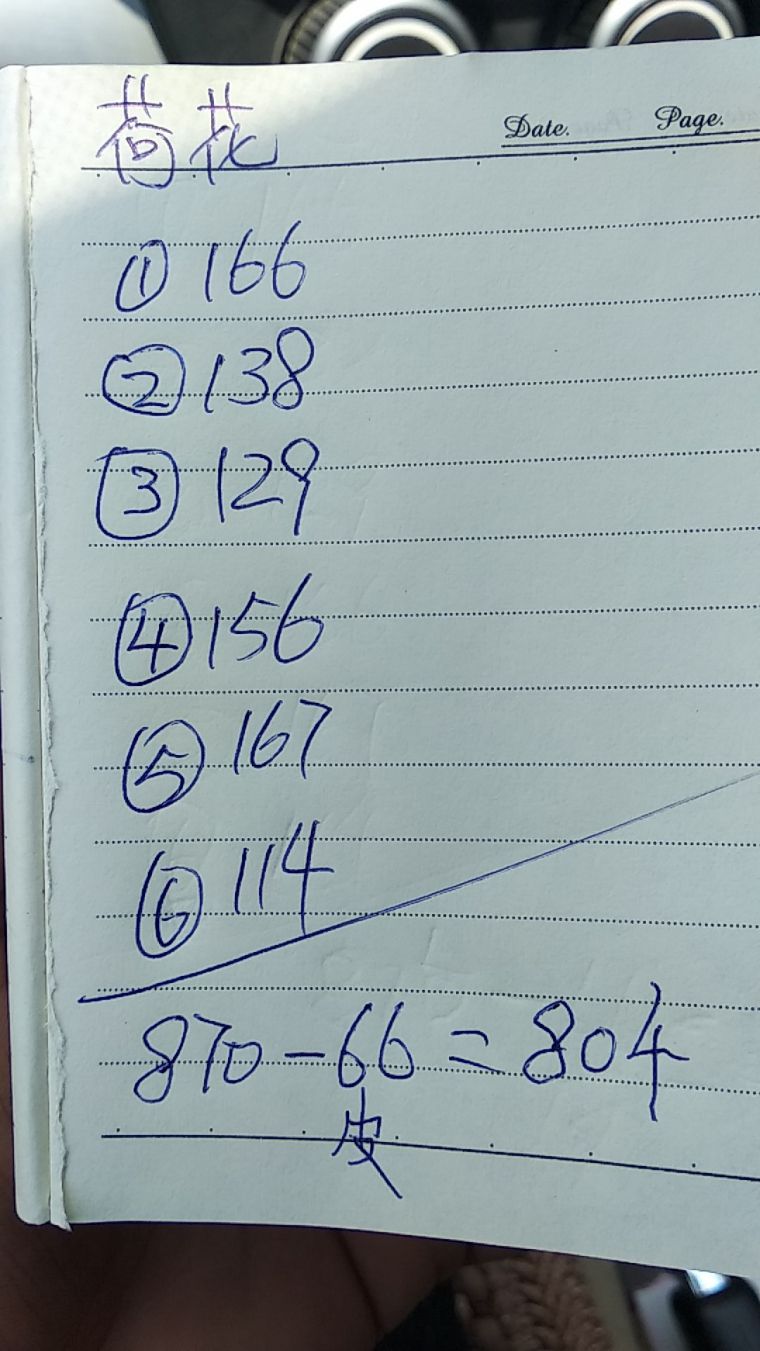 Date. Page.
荷花
① 166
② 138
③ 129
④ 156
⑤ 167
⑥ 114
870-66=804
皮